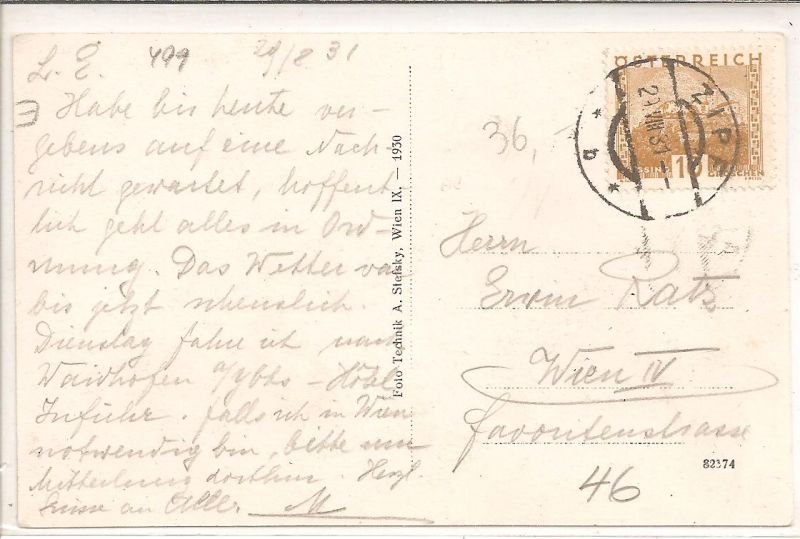 L. E. 499 29/8 31
Habe bis heute ver-
gebens auf eine Nach-
richt gewartet, hoffent-
lich geht alles in Ord-
nung. Das Wetter war
bis jetzt scheuslich.
Dienstag fahre ich nach
Waidhofen a/Ybbs - Hôtel
Inführ. falls ich in Wien
notwendig bin, bitte um
Mitteilung dorthin. Herzl.
Grüsse an Alle. M
Foto Technik A. Stefsky, Wien IX. — 1930
ÖSTERREICH
10
GROSCHEN
ZIPF
29.VIII.31
* b *
36,-
Herrn
Erwin Ratz
Wien IV
Favoritenstrasse
46
82374